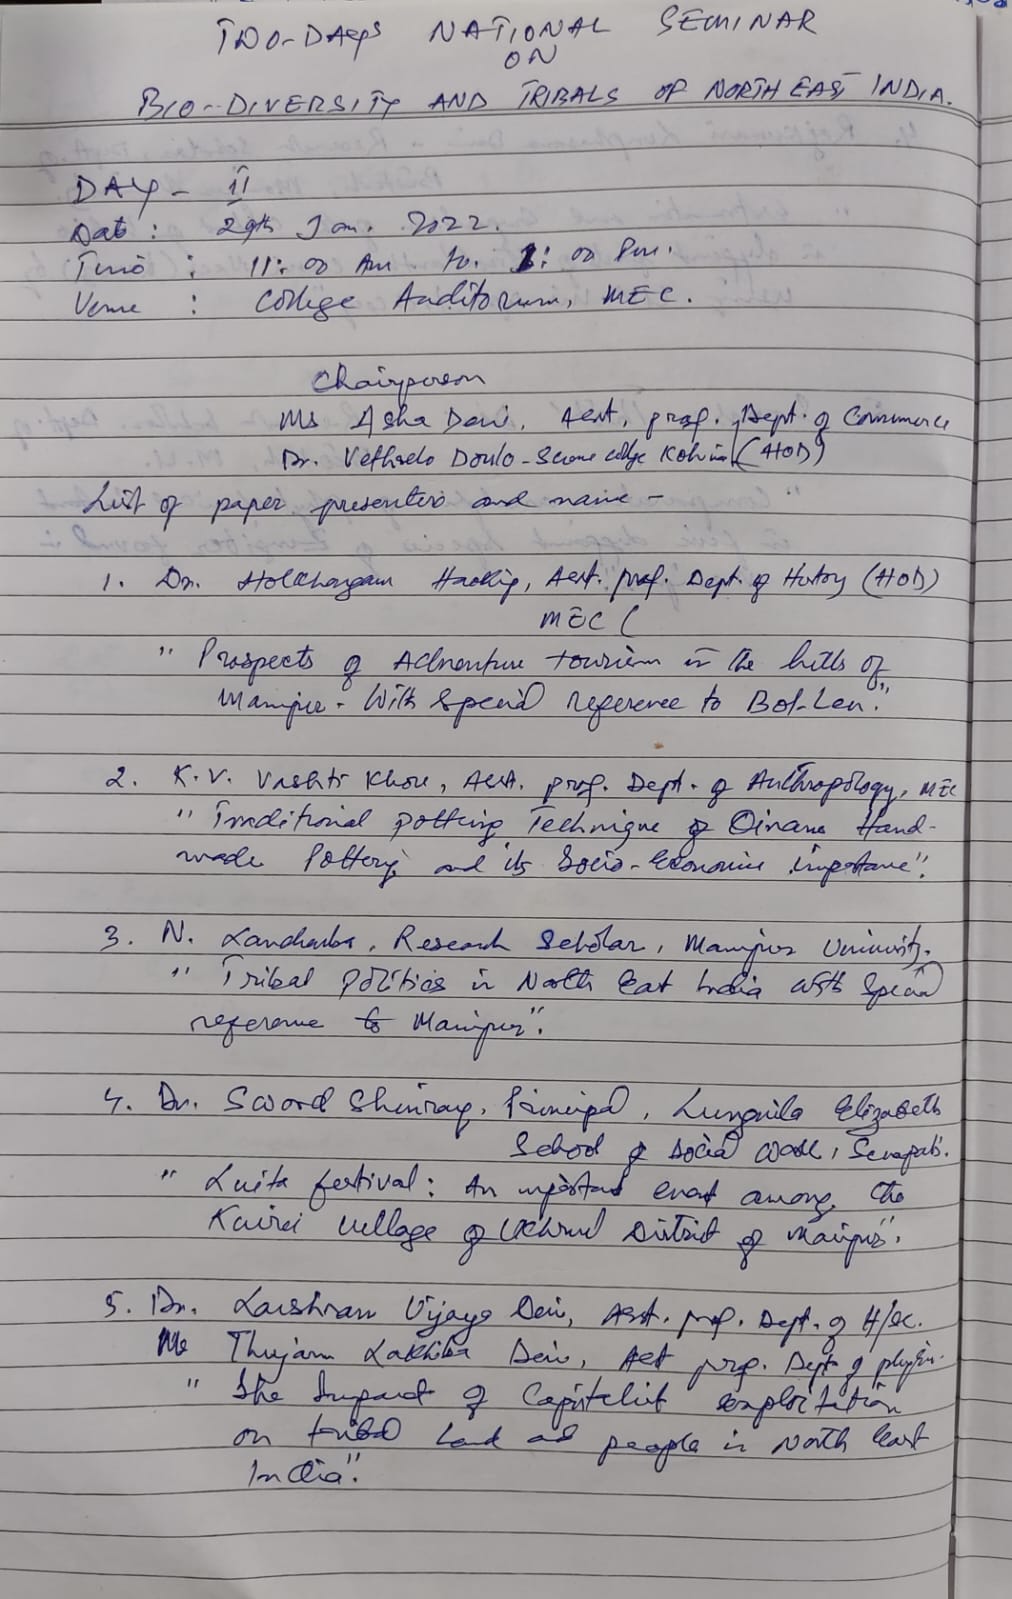 TWO-DAYS NATIONAL SEMINAR
ON
BIO-DIVERSITY AND TRIBALS OF NORTH EAST INDIA.
DAY - II
Date : 29th Jan. 2022.
Time : 11:00 Am to 1:00 Pm.
Venue : College Auditorium, MEC.
Chairperson
Ms Asha Devi, Asst. prof. Dept. of Commerce
Dr. Doulo - Science college Kohima (HOD)
List of paper presenters and name -
1. Dr. Haokip, Asst. prof. Dept. of History (HOD)
MEC (
" Prospects of Adventure tourism in the hills of
Manipur - With special reference to Bol-Len."
2. K.V. Vashti Khou, Asst. prof. Dept. of Anthropology, MEC
" Traditional potting Technique of Oinam Hand-
made Pottery and its Socio-Economic importance".
3. N. Research Scholar, Manipur University.
" Tribal Politics in North East India with Special
reference to Manipur".
4. Dr. Sword Shimray, Principal, Lungnila Elizabeth
School of Social Work, Senapati.
" Luita festival: An important event among the
Kairei village of Ukhrul District of Manipur".
5. Dr. Laishram Vijaya Devi, Asst. prof. Dept. of H/Sc.
Ms Devi, Asst prof. Dept of
" The Impact of Capitalist exploitation
on tribal Land and people in North East
India".